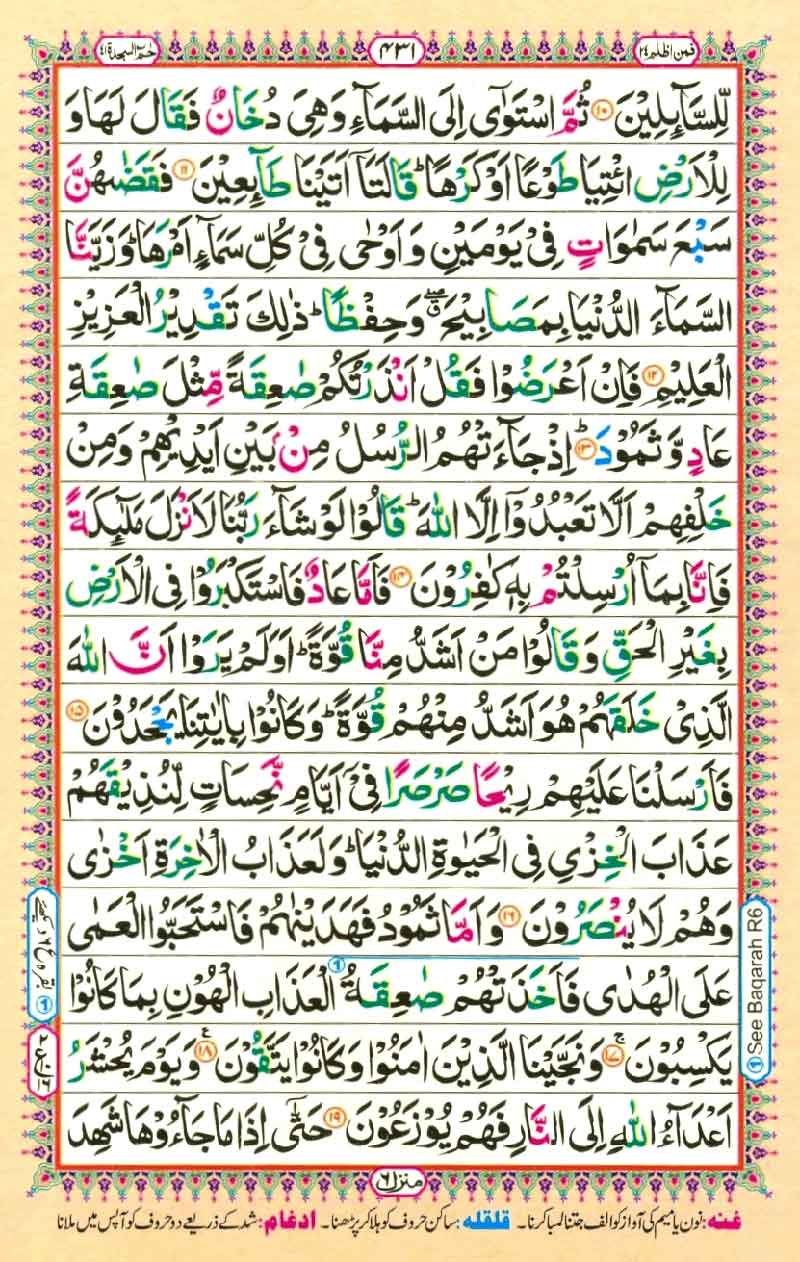 فمن اظلم ٢٤
٤٣١
حٰمٓ السجدة ٤١
لِّلسَّآىِٕلِیْنَ ۝۱۰ ثُمَّ اسْتَوٰۤى اِلَى السَّمَآءِ وَهِیَ دُخَانٌ فَقَالَ لَهَا وَ
لِلْاَرْضِ ائْتِیَا طَوْعًا اَوْ كَرْهًا ؕ قَالَتَاۤ اَتَیْنَا طَآىِٕعِیْنَ ۝۱۱ فَقَضٰىهُنَّ
سَبْعَ سَمٰوَاتٍ فِیْ یَوْمَیْنِ وَ اَوْحٰى فِیْ كُلِّ سَمَآءٍ اَمْرَهَا ؕ وَ زَیَّنَّا
السَّمَآءَ الدُّنْیَا بِمَصَابِیْحَ ۖۗ وَ حِفْظًا ؕ ذٰلِكَ تَقْدِیْرُ الْعَزِیْزِ
الْعَلِیْمِ ۝۱۲ فَاِنْ اَعْرَضُوْا فَقُلْ اَنْذَرْتُكُمْ صٰعِقَةً مِّثْلَ صٰعِقَةِ
عَادٍ وَّ ثَمُوْدَ ؕ۝۱۳ اِذْ جَآءَتْهُمُ الرُّسُلُ مِنْۢ بَیْنِ اَیْدِیْهِمْ وَ مِنْ
خَلْفِهِمْ اَلَّا تَعْبُدُوْۤا اِلَّا اللّٰهَ ؕ قَالُوْا لَوْ شَآءَ رَبُّنَا لَاَنْزَلَ مَلٰٓىِٕكَةً
فَاِنَّا بِمَاۤ اُرْسِلْتُمْ بِهٖ كٰفِرُوْنَ ۝۱۴ فَاَمَّا عَادٌ فَاسْتَكْبَرُوْا فِی الْاَرْضِ
بِغَیْرِ الْحَقِّ وَ قَالُوْا مَنْ اَشَدُّ مِنَّا قُوَّةً ؕ اَوَلَمْ یَرَوْا اَنَّ اللّٰهَ
الَّذِیْ خَلَقَهُمْ هُوَ اَشَدُّ مِنْهُمْ قُوَّةً ؕ وَ كَانُوْا بِاٰیٰتِنَا یَجْحَدُوْنَ ۝۱۵
فَاَرْسَلْنَا عَلَیْهِمْ رِیْحًا صَرْصَرًا فِیْۤ اَیَّامٍ نَّحِسَاتٍ لِّنُذِیْقَهُمْ
عَذَابَ الْخِزْیِ فِی الْحَیٰوةِ الدُّنْیَا ؕ وَ لَعَذَابُ الْاٰخِرَةِ اَخْزٰى
وَ هُمْ لَا یُنْصَرُوْنَ ۝۱۶ وَ اَمَّا ثَمُوْدُ فَهَدَیْنٰهُمْ فَاسْتَحَبُّوا الْعَمٰى
عَلَى الْهُدٰى فَاَخَذَتْهُمْ صٰعِقَةُ ① الْعَذَابِ الْهُوْنِ بِمَا كَانُوْا
یَكْسِبُوْنَ ۚ۝۱۷ وَ نَجَّیْنَا الَّذِیْنَ اٰمَنُوْا وَ كَانُوْا یَتَّقُوْنَ ۝۱۸ ع وَ یَوْمَ یُحْشَرُ
اَعْدَآءُ اللّٰهِ اِلَى النَّارِ فَهُمْ یُوْزَعُوْنَ ۝۱۹ حَتّٰۤى اِذَا مَا جَآءُوْهَا شَهِدَ
① See Baqarah R6
منزل ٦
غنه: نون یا میم کی آواز کو الف جتنا لمبا کرنا۔ قلقله: ساکن حروف کو ہلا کر پڑھنا۔ ادغام: شد کے ذریعے دو حروف کو آپس میں ملانا